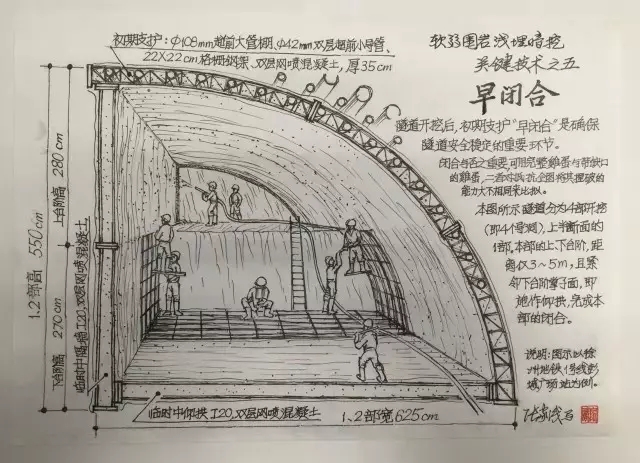 初期支护：φ108mm超前大管棚、φ42mm双层超前小导管、
22×22cm格栅钢架、双层网喷混凝土，厚35cm
软弱围岩浅埋暗挖
关键技术之五
早闭合
隧道开挖后，初期支护“早闭合”是确保
隧道安全稳定的重要环节。
闭合与否之重要，可用完整鸡蛋与带缺口
的鸡蛋，二者
能力大不相同来比拟。
本图所示隧道分为4部开挖
（即4个导洞），上半断面的
1部，本部的上、下台阶，距
离仅3~5m，且紧
邻下台阶掌子面，即
施作仰拱，完成本
部的闭合。
说明：图示以徐
州地铁1号线彭
城广场站为例。
1、2部高 550cm
上台阶高 280cm
下台阶高 270cm
临时中隔墙I20、双层网喷混凝土
临时中仰拱I20、双层网喷混凝土
1、2部宽625cm